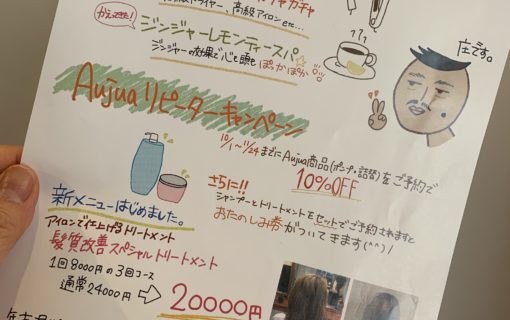 高級アイロン etc...
かえってきた!
ジンジャーレモンティースパ☆
ジンジャーの効果で心も頭もぽっかぽか
???
庄です。
Aujuaリピーターキャンペーン
10/1〜11/24までにAujua商品(ポンプ・詰替)をご予約で
10%OFF
さらに!!
シャンプーとトリートメントをセットでご予約されますと
おたのしみ券がついてきます(^^)/
新メニューはじめました。
アイロンで仕上げるトリートメント
髪質改善スペシャルトリートメント
1回8000円の3回コース
通常24000円 ⇒ 20000円